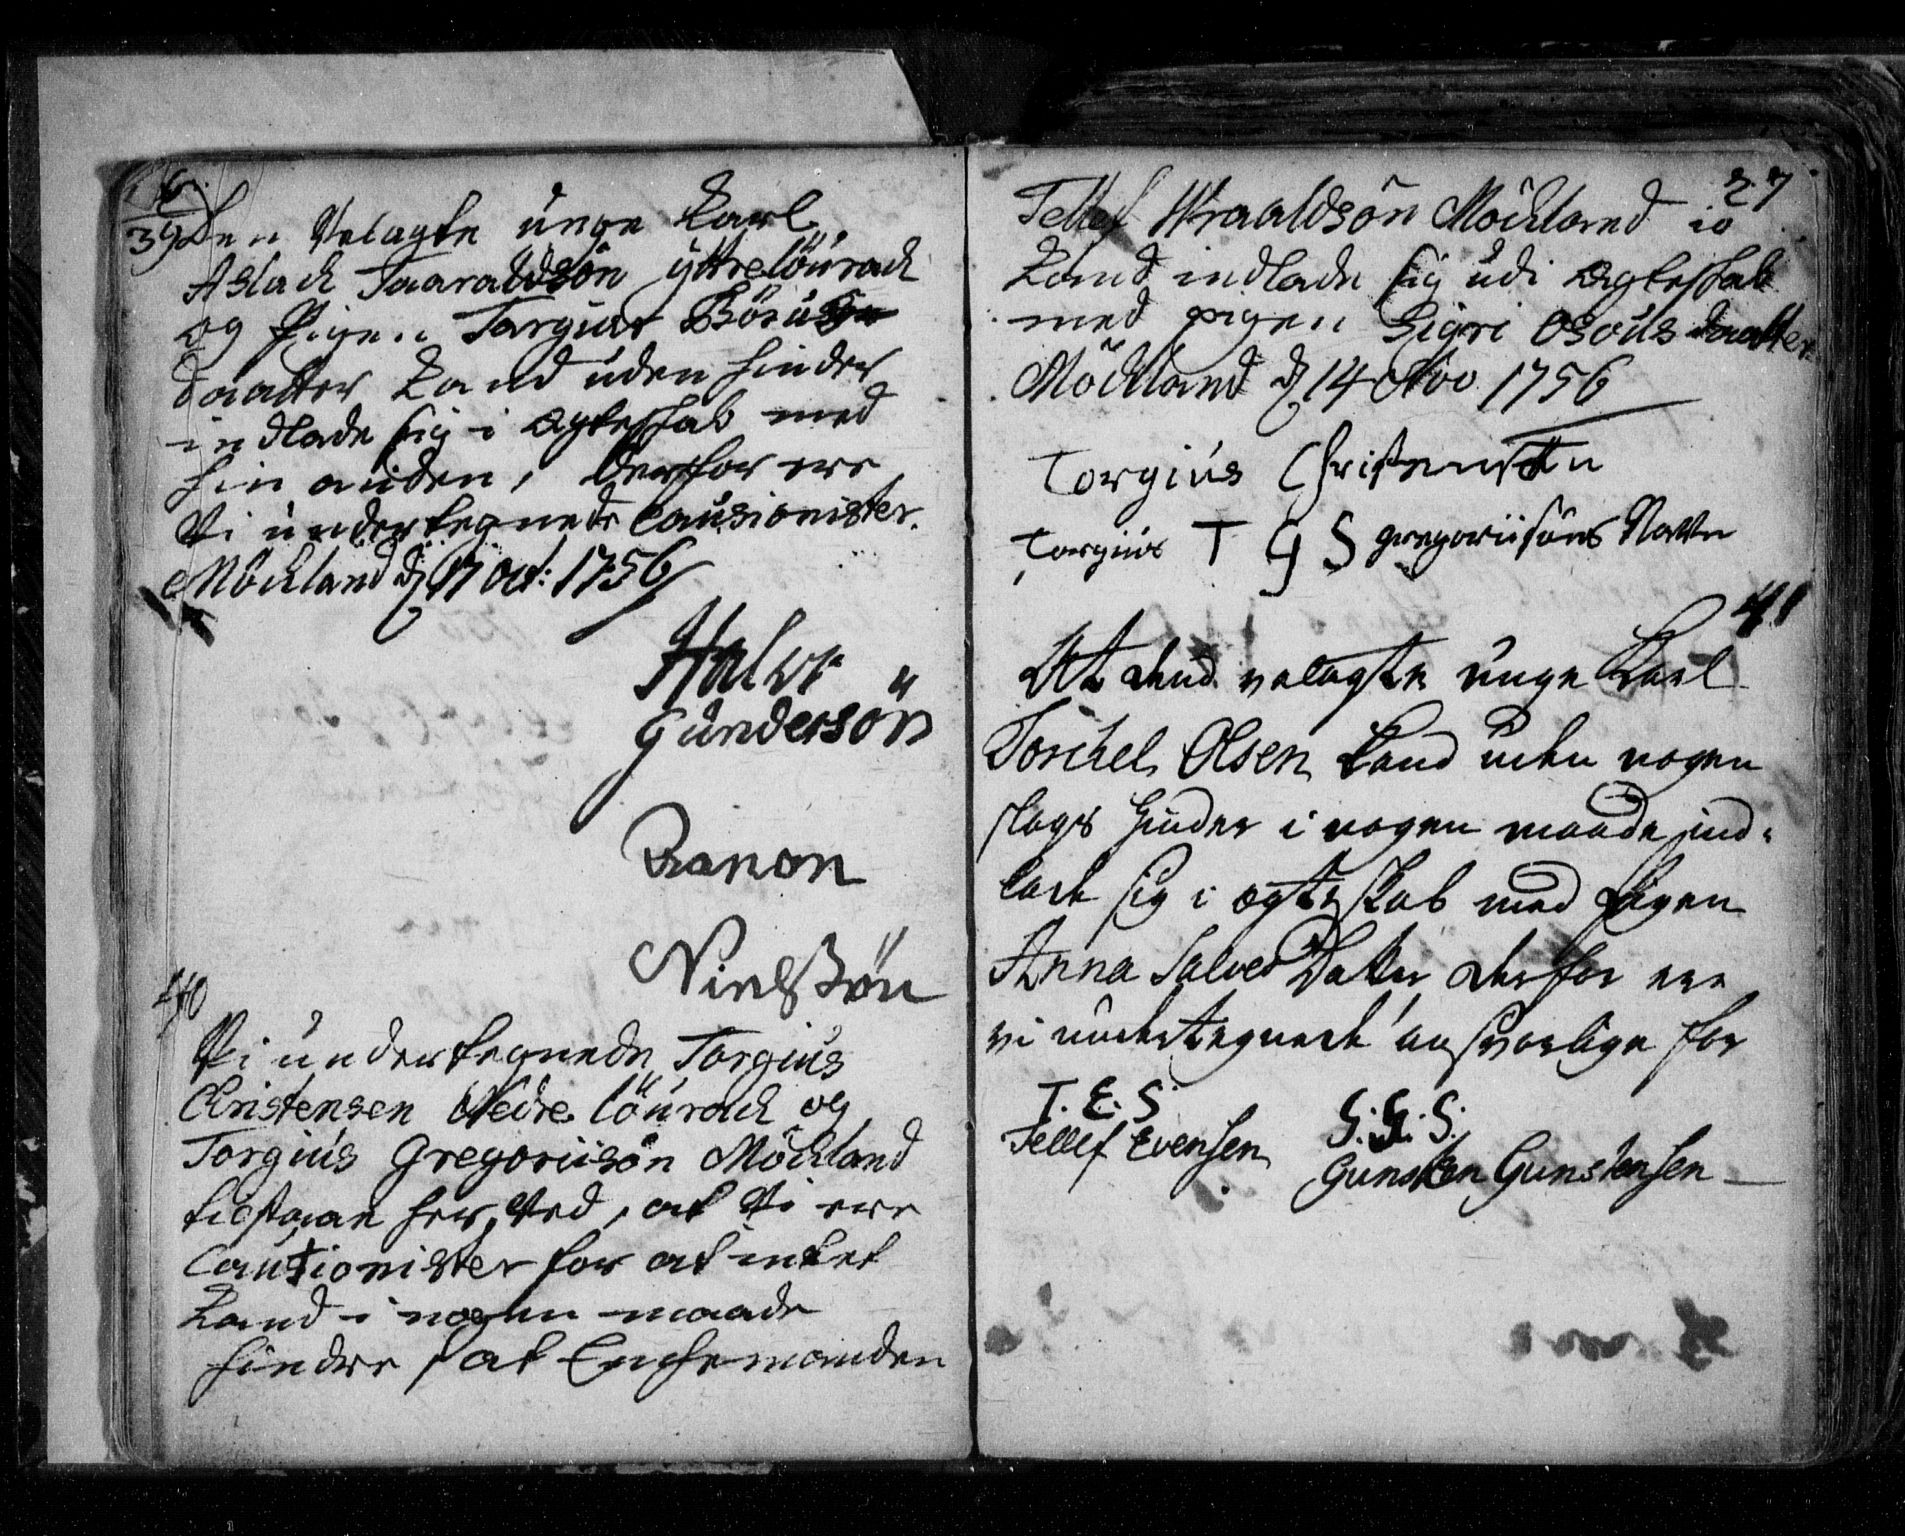 39 Den Velagte unge Karl
Aslach Taaraldsön yttrelöurach
og Pigen Torgier
daatter kand uden hinder
indlade sig i Ægteskab med
hin anden, derfor ere
Vi undertegnede Causionister.
Möchland d 17 oct: 1756
Halvr
Gundersön
Zanon
Nielssön
40
Vi undertegnede Torgius
Christensen Nedre löurach og
Torgius Gregoriisön Möchland
tilstaae her ved, at Vi ere
Cautionister for at intet
kand i nogen maade
hindre, at Enchemanden
27
Tellef Wraaldsön Möchland io
kand indlade sig udi Ægteskab
med pigen Sigri Osouls daatter
Möchland d 14 Nov 1756
Torgius Christensen
Torgius T G S gregoriisöns Navn
41
At dend velagte unge Karl
Torchel Olsen kand uden nogen
slags hinder i nogen maade ind-
lade sig i ægteskab med Pigen
Anna Salves Datter derfor ere
vi undertegnede ansvarlige for
T. E. S. G. G. S.
Tellef Evensen Gunsten Gunstensen